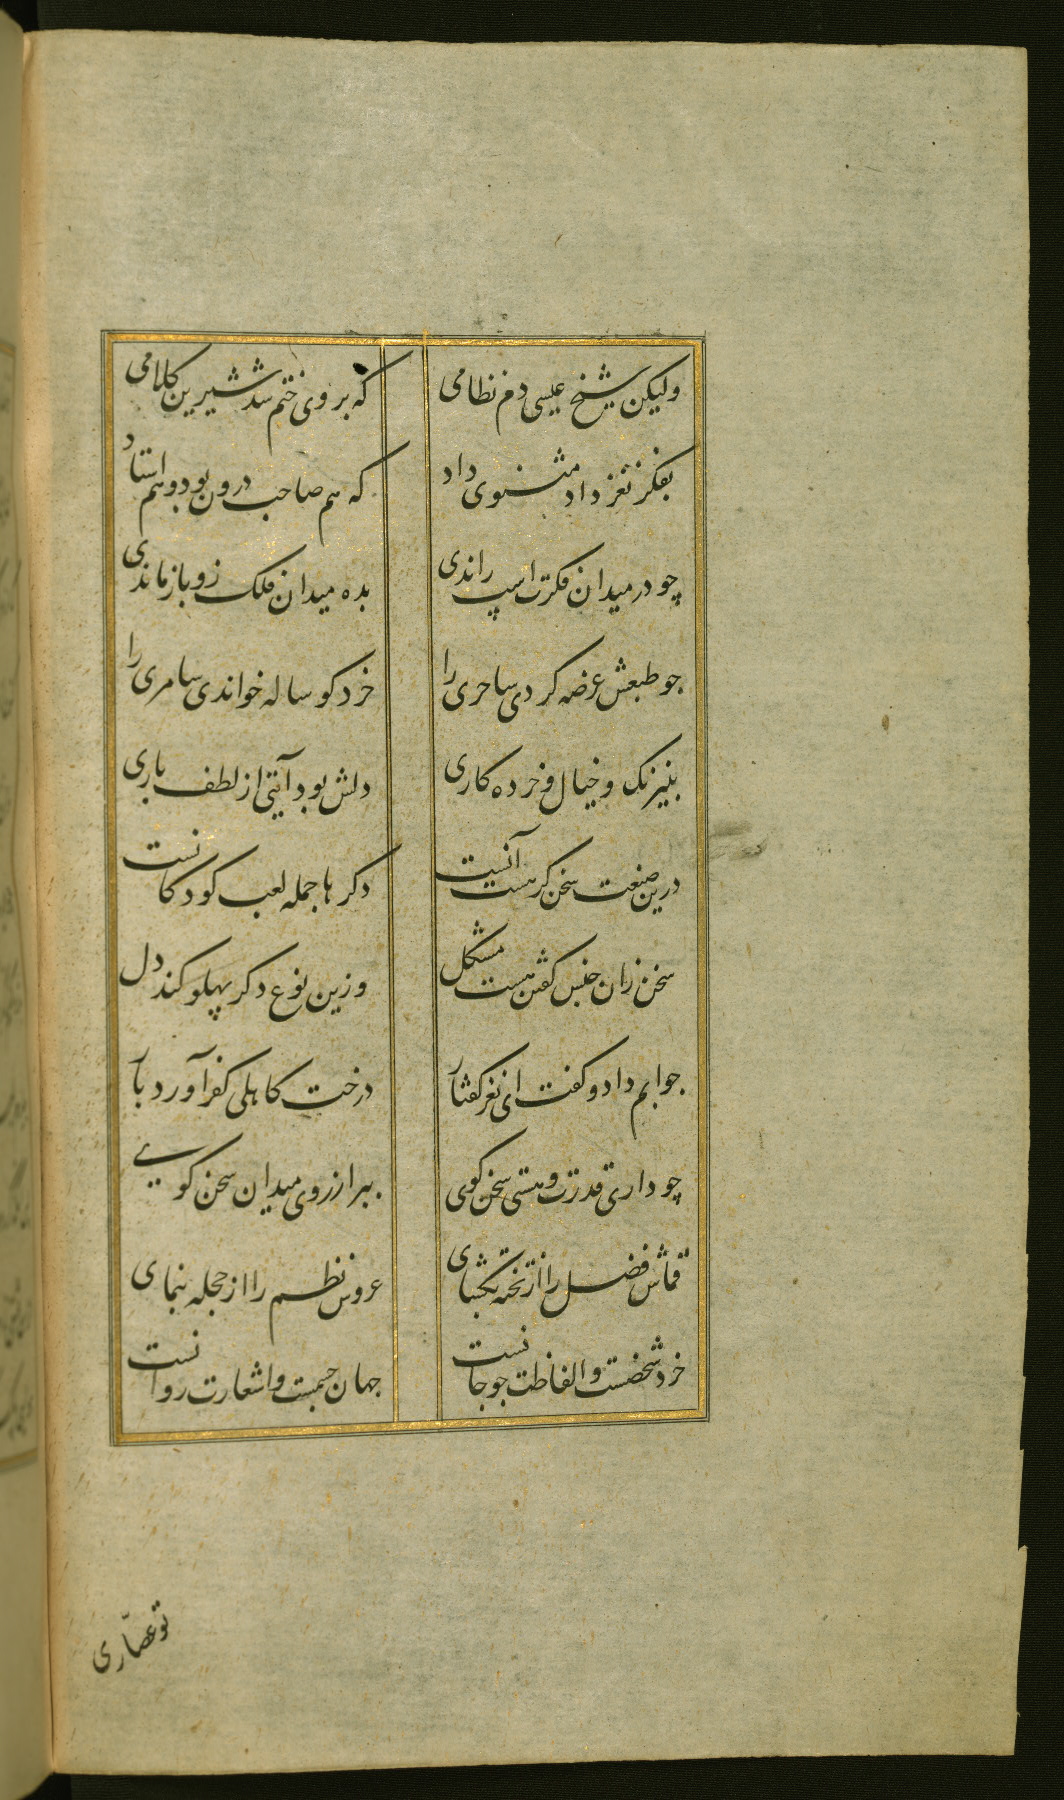 ولیکن شیخ عیسی دم نظامی
که بر وی ختم شد شیرین کلامی
بفکر نغز داد مثنوی داد
که هم صاحب درون بود و هم استاد
چو در میدان فکرت اسپ راندی
بده میدان فلک زو باز ماندی
جو طبعش عرضه کردی ساحری را
خرد کوساله خواندی سامری را
بنیرنک و خیال و خرده کاری
دلش بود آیتی از لطف باری
درین صنعت سخن کر هست آنیست
دکرها جمله لعب کودکانست
سخن زان جنس کفتن هست مشکل
وزین نوع دکر پهلو کند دل
جوابم داد و کفت ای نغز کفتار
درخت کاهلی کفر آورد بار
چو داری قدرت و هستی سخن کوی
ببر از روی میدان سخن کویی
قماش فضل را از تخته بکشای
عروس نظم را از حجله بنمای
خرد شخصست و الفاظت جو جانست
جهان جسمست و اشعارت روانست
تو عصّاری